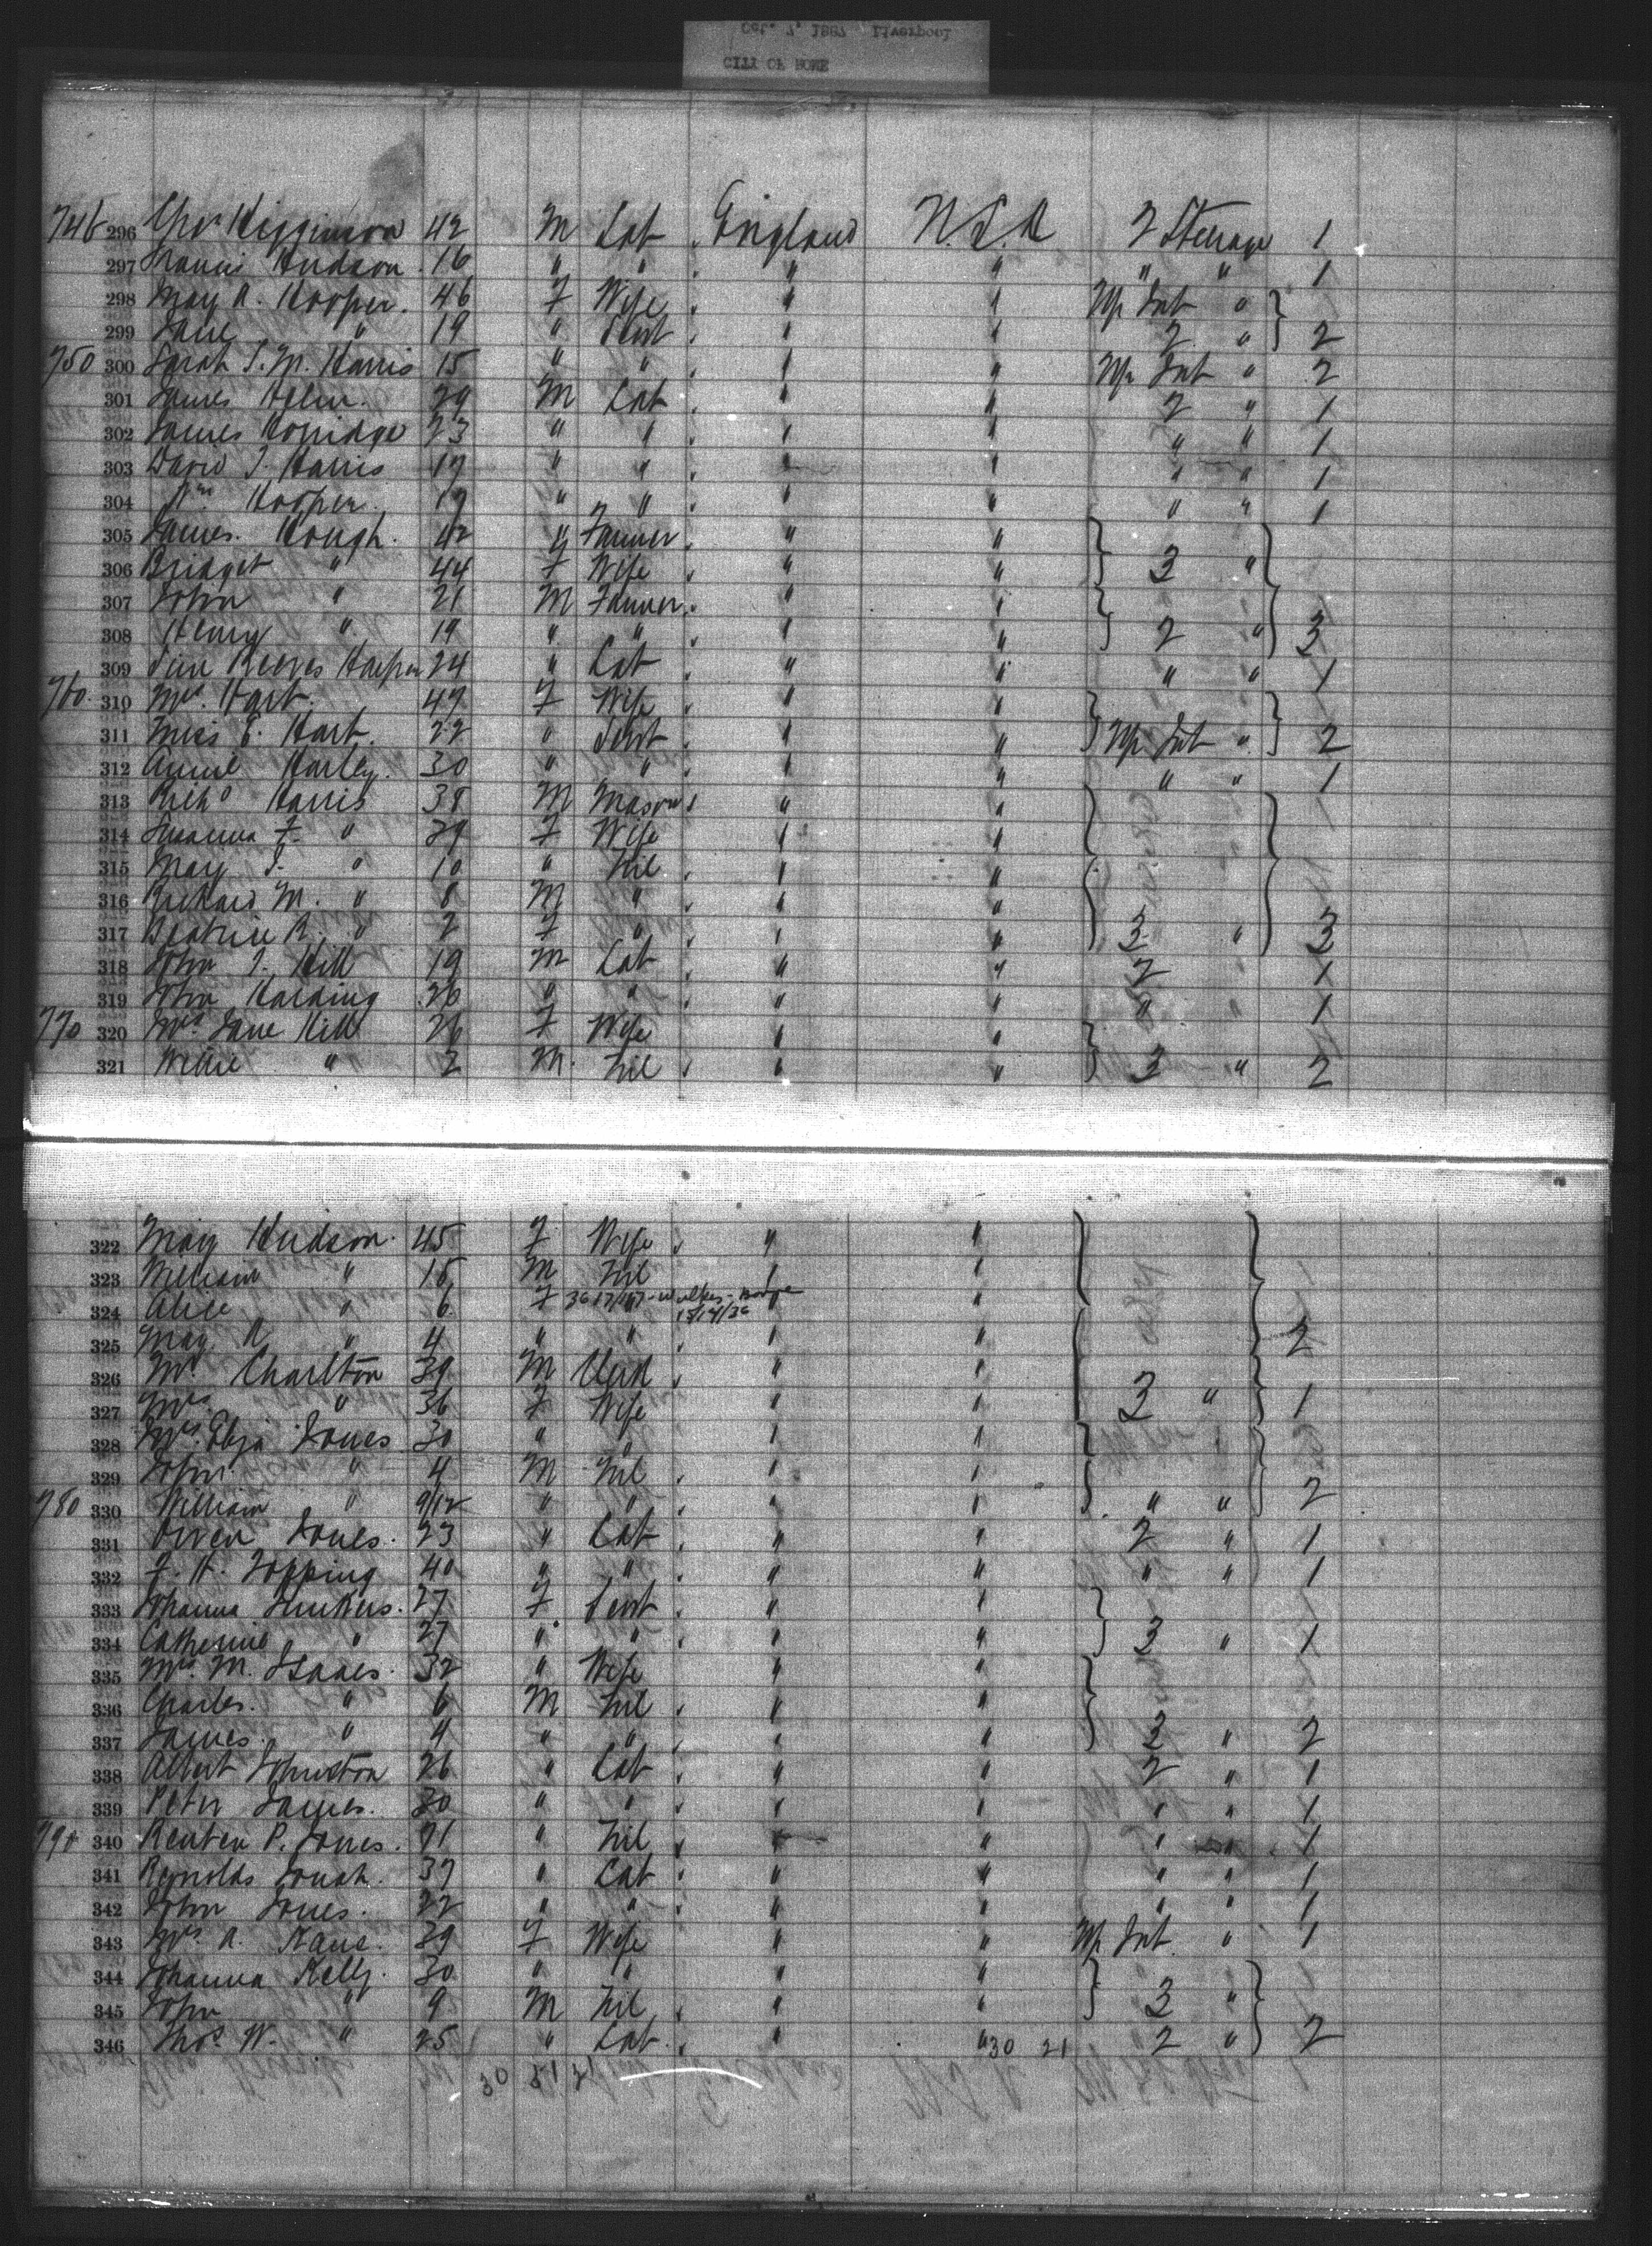 Oct. 7, 1887 Liverpool
CITY OF ROME
746 296 Higginson 42 M Lab England U.S.A 2 Steerage 1
297 Francis Hudson 16 " " " " " " 1
298 May A. Hooper 46 F Wife " " Up Int "
299 Jane " 19 " Servt " " 2 " 2
750 300 Sarah J. M. Harris 15 " " " " Up Int " 2
301 James Helm 29 M Lab " " 2 " 1
302 James Horridge 23 " " " " " " 1
303 David J. Harris 17 " " " " " " 1
304 Wm Hooper 19 " " " " " " 1
305 James Hough 42 " Farmer " " 3 "
306 Bridget " 44 F Wife " "
307 John " 21 M Farmer " "
308 Henry " 19 " " " " 2 " 3
309 Reeves 24 " Lab " " " " 1
760 310 Mrs. Hart 47 F Wife " "
311 Miss E. Hart 22 " Servt " " Up Int " 2
312 Annie Harley 30 " " " " " " 1
313 Richd Harris 38 M Mason " "
314 Susanna F. " 39 F Wife " "
315 May J. " 10 " Nil " "
316 Richard M. " 8 M " " "
317 Beatrice R. " 2 F " " " 3 " 3
318 John J. Hill 19 M Lab " " 2 " 1
319 John Harding 26 " " " " " " 1
770 320 Mrs Jane Hill 26 F Wife " "
321 Willie " 2 M Nil " " 3 " 2
322 May Hudson 45 F Wife " "
323 William " 15 M Nil " "
324 Alice " 6 F "
325 May A " 4 " " " " 2
326 Mr. Charlton 39 M Clerk " "
327 Mrs. " 36 F Wife " " 3 " 1
328 Mrs. Eliza Jones 30 " " " "
329 John " 4 M Nil " "
780 330 William " 9/12 " " " " " " 2
331 Owen Jones 23 " Lab " " 2 " 1
332 Topping 40 " " " " " " 1
333 Johanna Junkers 27 F Servt " "
334 Catherine " 27 " " " " 3 " 1
335 Mrs M. Isaacs 32 " Wife " "
336 Charles " 6 M Nil " "
337 James " 4 " " " " 3 " 2
338 Albert Johnston 26 " Lab " " 2 " 1
339 Peter James 30 " " " " " " 1
790 340 Reuben P. Jones " Nil " " " " 1
341 Reynolds 37 " Lab " " " " 1
342 John Jones 22 " " " " " " 1
343 Mrs. A. Kane 39 F Wife " " Up Int " 1
344 Johanna Kelly 30 " " " "
345 John " 9 M Nil " " 3 "
346 Thos W. " 25 " Lab " " 30 21 2 " 2
30 21